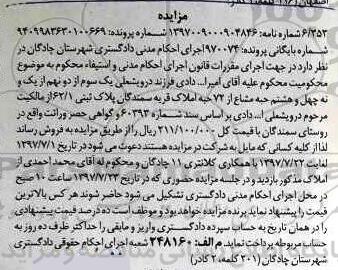 مزایده
۶/۳۵۳ شماره نامه: ۱۳۹۷۰۰۹۰۰۰۹۰۴۸۴۶ شماره پرونده: ۹۴۰۹۹۸۳۶۳۰۱۰۰۶۶۹
شماره بایگانی پرونده: ۹۷۰۰۷۴ اجرای احکام مدنی دادگستری شهرستان چادگان در
نظر دارد در جهت اجرای مقررات قانون اجرای احکام مدنی و استیفاء محکوم به موضوع
محکومیت محکوم علیه آقای امیرا... دادی فرزند درویشعلی یک سوم از دو نهم از یک و
نه چهل و هشتم حبه مشاع از ۷۲ حبه املاک قریه سمندگان پلاک ثبتی ۶۲/۱ از مالکیت
مرحوم درویشعلی ... دادی بر اساس سند شماره ۶۰۳۹۳ و گواهی حصر وراثت واقع در
روستای سمندگان با قیمت کل ۲۱۱/۱۰۰/۰۰۰ ریال را از طریق مزایده به فروش رساند
لذا از کلیه کسانی که مایل به شرکت در مزایده هستند دعوت می شود در تاریخ ۱۳۹۷/۷/۱
لغایت ۱۳۹۷/۷/۲۲ با همکاری کلانتری ۱۱ چادگان و محکوم له آقای محمد احمدی از
املاک مذکور بازدید و در جلسه مزایده حضوری که در تاریخ ۱۳۹۷/۷/۲۳ ساعت ۱۰ صبح
در محل اجرای احکام مدنی دادگستری تشکیل می شود حاضر شوند هر کس بالاترین
قیمت را پیشنهاد نماید برنده مزایده خواهد بود و موظف است ده درصد قیمت پیشنهادی
را در همان تاریخ به حساب سپرده دادگستری واریز و مابقی را حداکثر ظرف ده روز به
حساب مربوطه پرداخت نماید. م الف: ۲۴۸۱۶۰ شعبه اجرای احکام حقوقی دادگستری
شهرستان چادگان (۲۰۱ کلمه، ۲ کادر)